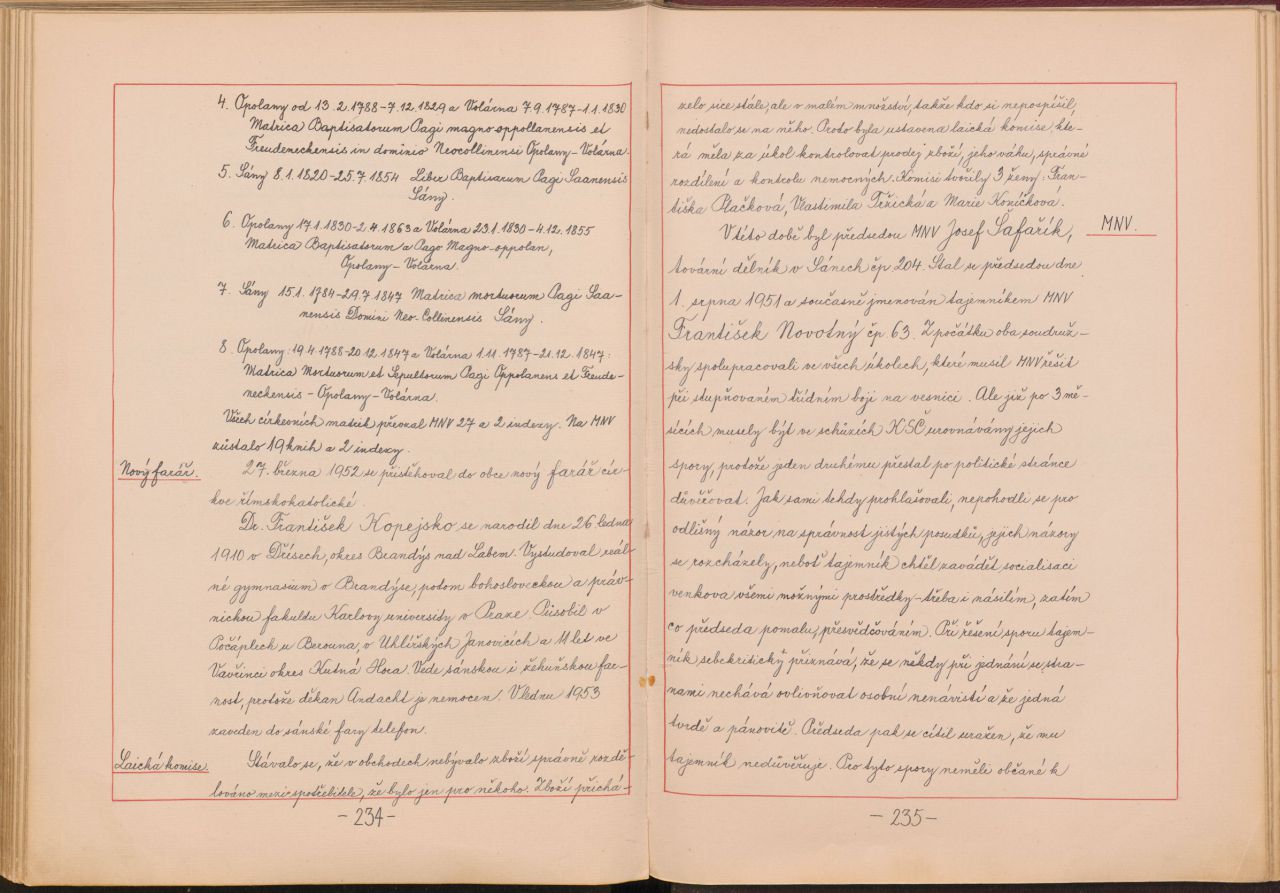 4. Opolany od 13.2.1788-7.12.1829 a Volárna 7.9.1787-1.1.1830
Matrica Baptisatorum Pagi magno-oppollanensis et
Freudeneckensis in dominio Neocollinensi Opolany-Volárna.
5. Sány 8.1.1820-25.7.1854 Liber Baptisarum Pagi Saanensis
Sány.
6. Opolany 17.1.1830-2.4.1863 a Volárna 23.1.1830-4.12.1855
Matrica Baptisatorum a Pago Magno-oppolan,
Opolany-Volárna.
7. Sány 15.1.1784-29.7.1847 Matrica mortuorum Pagi Saa-
nensis Domini Neo-Collinensis Sány.
8. Opolany: 19.4.1788-20.12.1847 a Volárna 1.11.1787-21.12.1847:
Matrica Mortuorum et Sepultorum Pagi Oppolanens et Freude-
neckensis-Opolany-Volárna.
Všech církevních matrik převzal MNV 27 a 2 indexy. Na MNV
zůstalo 19 knih a 2 indexy.
Nový farář.
27. března 1952 se přistěhoval do obce nový farář cír-
kve římskokatolické.
Dr. František Kopejsko se narodil dne 26. ledna
1910 v Dřísech, okres Brandýs nad Labem. Vystudoval reál-
né gymnasium v Brandýse, potom bohosloveckou a práv-
nickou fakultu Karlovy university v Praze. Působil v
Počáplech u Berouna, v Uhlířských Janovicích a 11 let ve
Vavřinci okres Kutná Hora. Vede sánskou i žehuňskou far-
nost, protože děkan Andacht je nemocen. V lednu 1953
zaveden do sánské fary telefon.
Laická komise.
Stávalo se, že v obchodech nebývalo zboží správně rozdě-
lováno mezi spotřebitele, že bylo jen pro někoho. Zboží přichá-
-234-
zelo sice stále, ale v malém množství, takže kdo si nepospíšil,
nedostalo se na něho. Proto byla ustavena laická komise, kte-
rá měla za úkol kontrolovat prodej zboží, jeho váhu, správné
rozdílení a kontrolu nemocných. Komisi tvořily 3 ženy: Fran-
tiška Plačková, Vlastimila Tržická a Marie Koníčková.
MNV.
V této době byl předsedou MNV Josef Šafařík,
tovární dělník v Sánech čp 204. Stal se předsedou dne
1. srpna 1951 a současně jmenován tajemníkem MNV
František Novotný čp. 63. Z počátku oba soudruž-
sky spolupracovali ve všech úkolech, které musil MNV řešit
při stupňovaném třídním boji na vesnici. Ale již po 3 mě-
sících musely být ve schůzích KSČ urovnávány jejich
spory, protože jeden druhému přestal po politické stránce
důvěřovat. Jak sami tehdy prohlašovali, nepohodli se pro
odlišný názor na správnost jistých posudků, jejich názory
se rozcházely, neboť tajemník chtěl zavádět socialisaci
venkova všemi možnými prostředky-třeba i násilím, zatím
co předseda pomalu, přesvědčováním. Při řešení sporu tajem-
ník sebekriticky přiznává, že se někdy při jednání se stra-
nami nechává ovlivňovat osobní nenávistí a že jedná
tvrdě a pánovitě. Předseda pak se cítil uražen, že mu
tajemník nedůvěřuje. Pro tyto spory neměli občané k
-235-